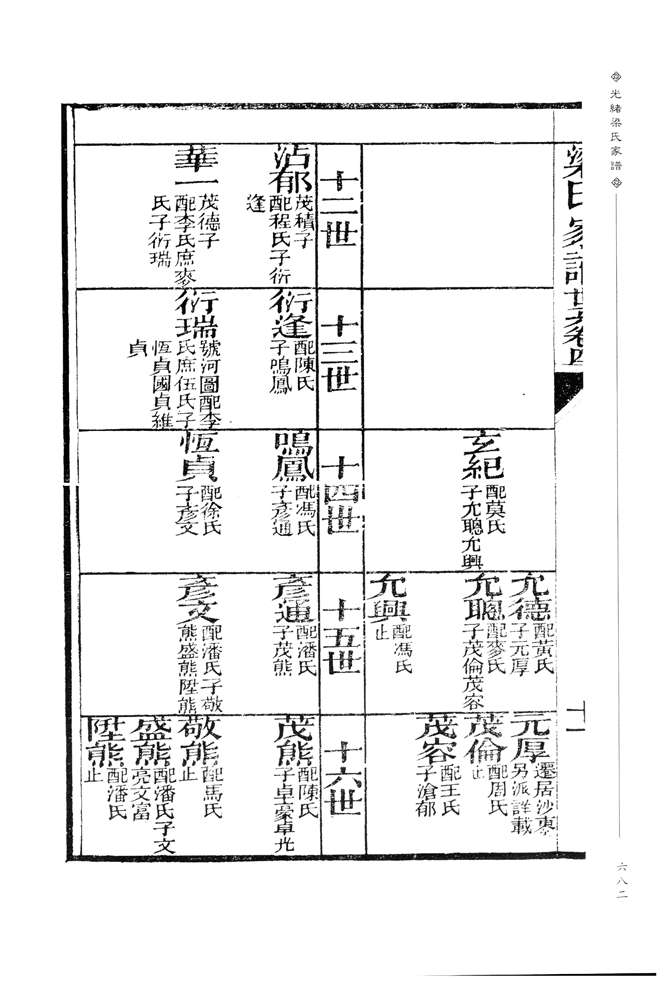 光緒梁氏家譜
梁氏家譜世系卷四
十一
玄紀
配莫氏
子允聰允興
允德
配黃氏
子元厚
允聰
配麥氏
子茂倫茂容
允興
配馮氏
止
元厚
遷居沙
另派詳載
茂倫
配周氏
止
茂容
配王氏
子滄郁
十二世
十三世
十四世
十五世
十六世
沾郁
茂積子
配程氏子衍
逢
華一
茂德子
配李氏庶麥
氏子衍瑞
衍逢
配陳氏
子鳴鳳
衍瑞
號河圖配李
氏庶伍氏子
恆貞國貞維
貞
鳴鳳
配馮氏
子彥通
恆貞
配徐氏
子彥文
彥通
配潘氏
子茂熊
彥文
配潘氏子敬
熊盛熊陞熊
茂熊
配陳氏
子卓豪卓光
敬熊
配馬氏
止
盛熊
配潘氏子文
亮文富
陞熊
配潘氏
止
六八二